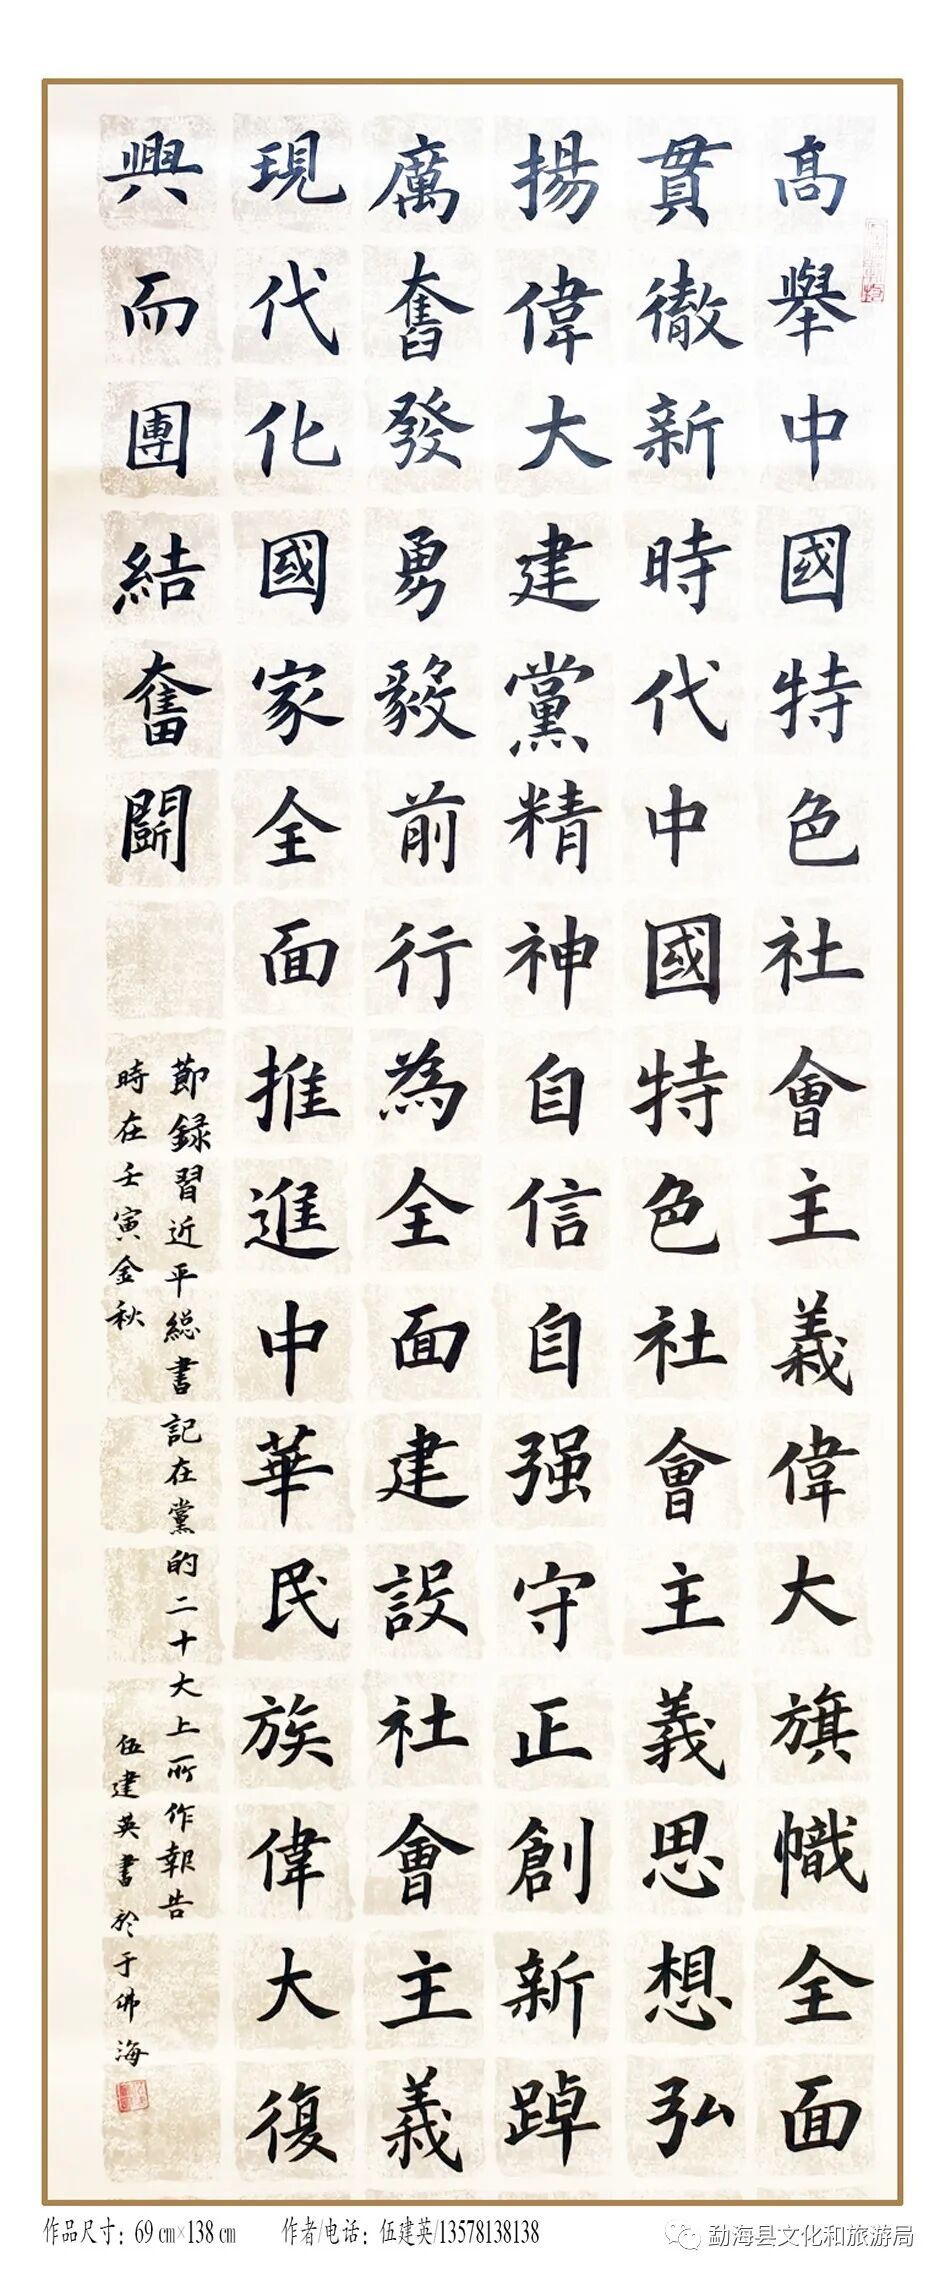 髙舉中國特色社會主義偉大旗幟全面
貫徹新時代中國特色社會主義思想弘
揚偉大建黨精神自信自强守正創新踔
厲奮發勇毅前行為全面建設社會主義
現代化國家全面推進中華民族偉大復
興而團結奮鬭
節録習近平総書記在黨的二十大上所作報告
時在壬寅金秋 伍建英書於于佛海
作品尺寸：69㎝×138㎝ 作者/电话：伍建英/13578138138
勐海县文化和旅游局